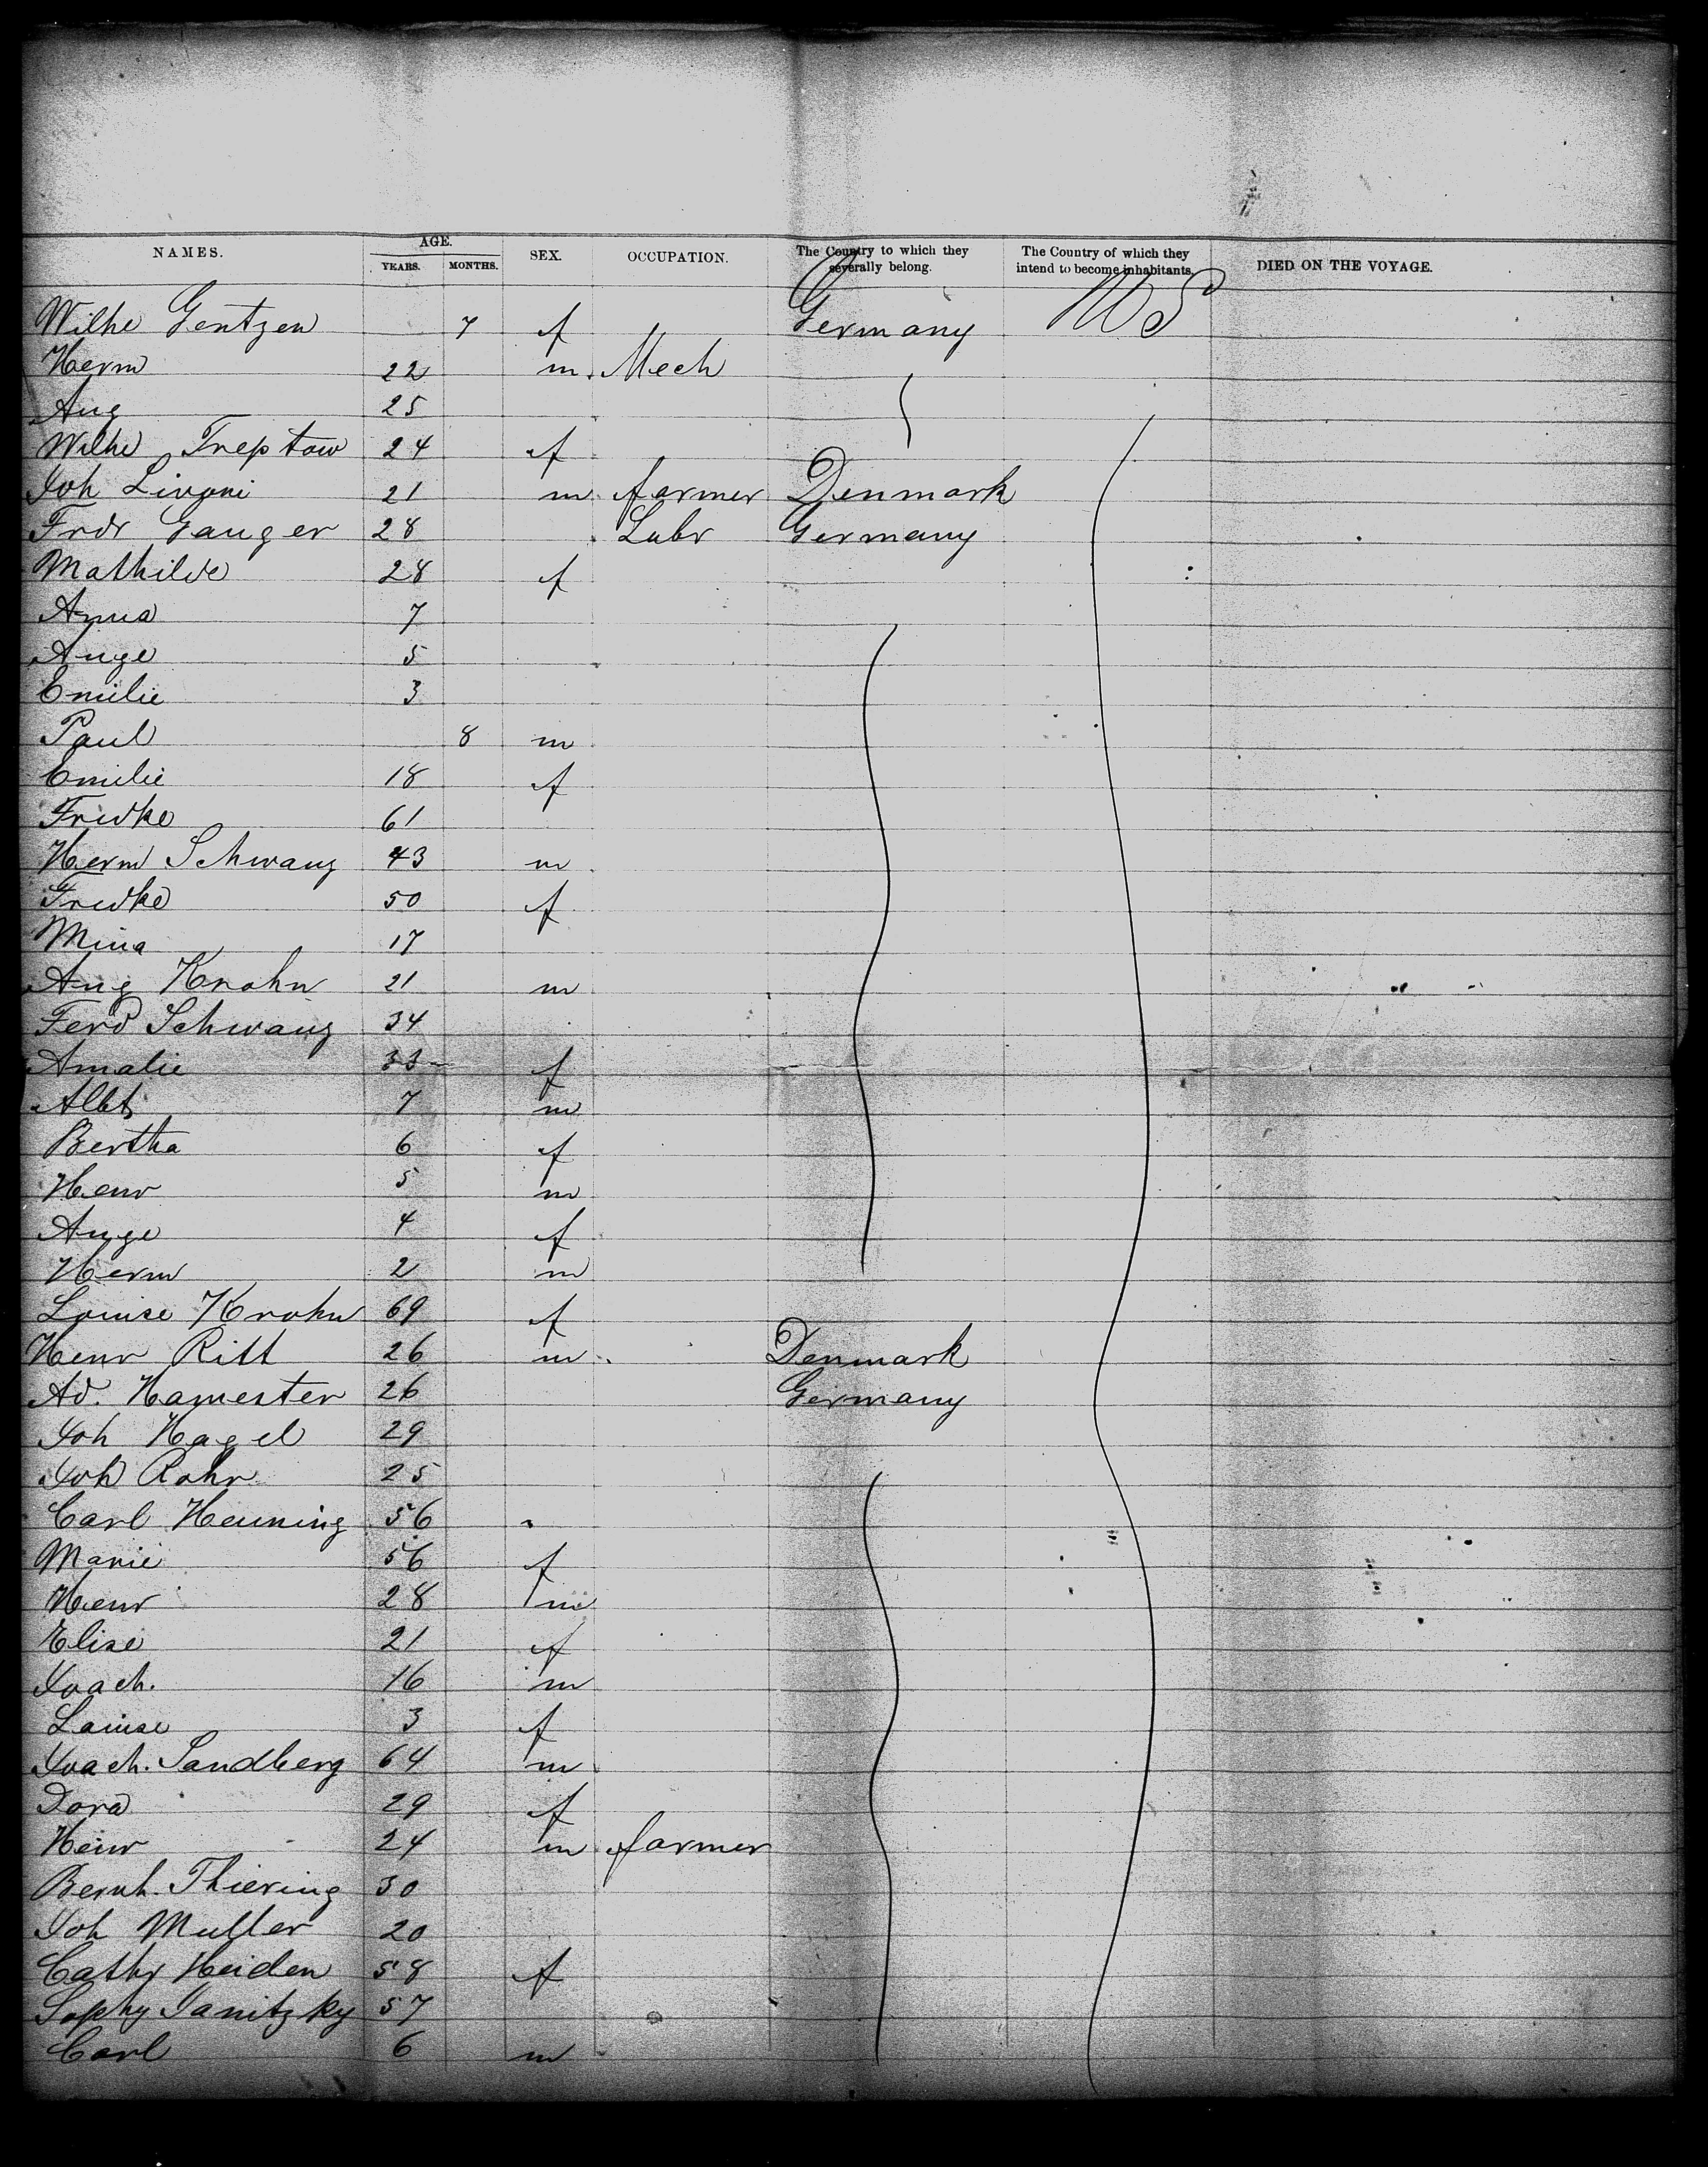 NAMES. AGE. SEX. OCCUPATION. The Country to which they severally belong. The Country of which they intend to become inhabitants. DIED ON THE VOYAGE.
YEARS. MONTHS.
Wilhe Gentzen 7 f Germany US
Herm 22 m Mech
Aug 25
Wilhe Treptow 24 f
Joh Livoni 21 m farmer Denmark
Frdr Gauger 28 Labr Germany
Mathilde 28 f
Anna 7
Auge 5
Emilie 3
Paul 8 m
Emilie 18 f
Fridke 61
Herm Schwang 43 m
Fridke 50 f
Mina 17
Aug Krohn 21 m
Ferd Schwang 34
Amalie 33 f
Albt 7 m
Bertha 6 f
Henr 5 m
Auge 4 f
Herm 2 m
Louise Krohn 69 f
Henr Ritt 26 m Denmark
Ad. Hamester 26 Germany
Joh Hagel 29
Joh Rohr 25
Carl Henning 56
Marie 56 f
Henr 28 m
Elise 21 f
Joach. 16 m
Louise 3 f
Joach. Sandberg 64 m
Dora 29 f
Heinr 24 m farmer
Bernh. Thiering 30
Joh Muller 20
Cathr Heiden 58 f
Sophy Janitzky 57
Carl 6 m